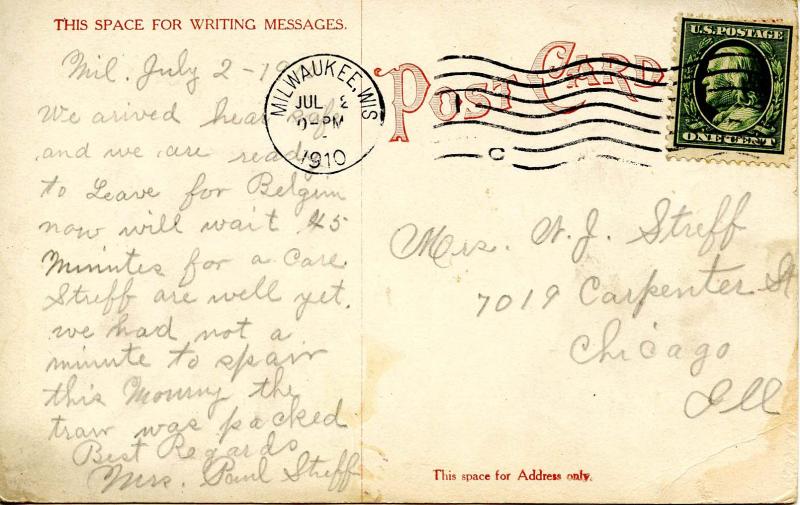 THIS SPACE FOR WRITING MESSAGES.
Mil. July 2 - 19
We arived hear safe
and we are ready
to Leave for Belgium
now will wait 45
Minutes for a Care
Streff are well yet.
we had not a
minute to spair
this Mourny the
train was packed
Best Regards
Mrs. Paul Streff
MILWAUKEE, WIS
JUL 2
PM
1910
C
POST CARD
U.S. POSTAGE
ONE CENT
Mrs. N. J. Streff
7019 Carpenter St
Chicago
Ill
This space for Address only.